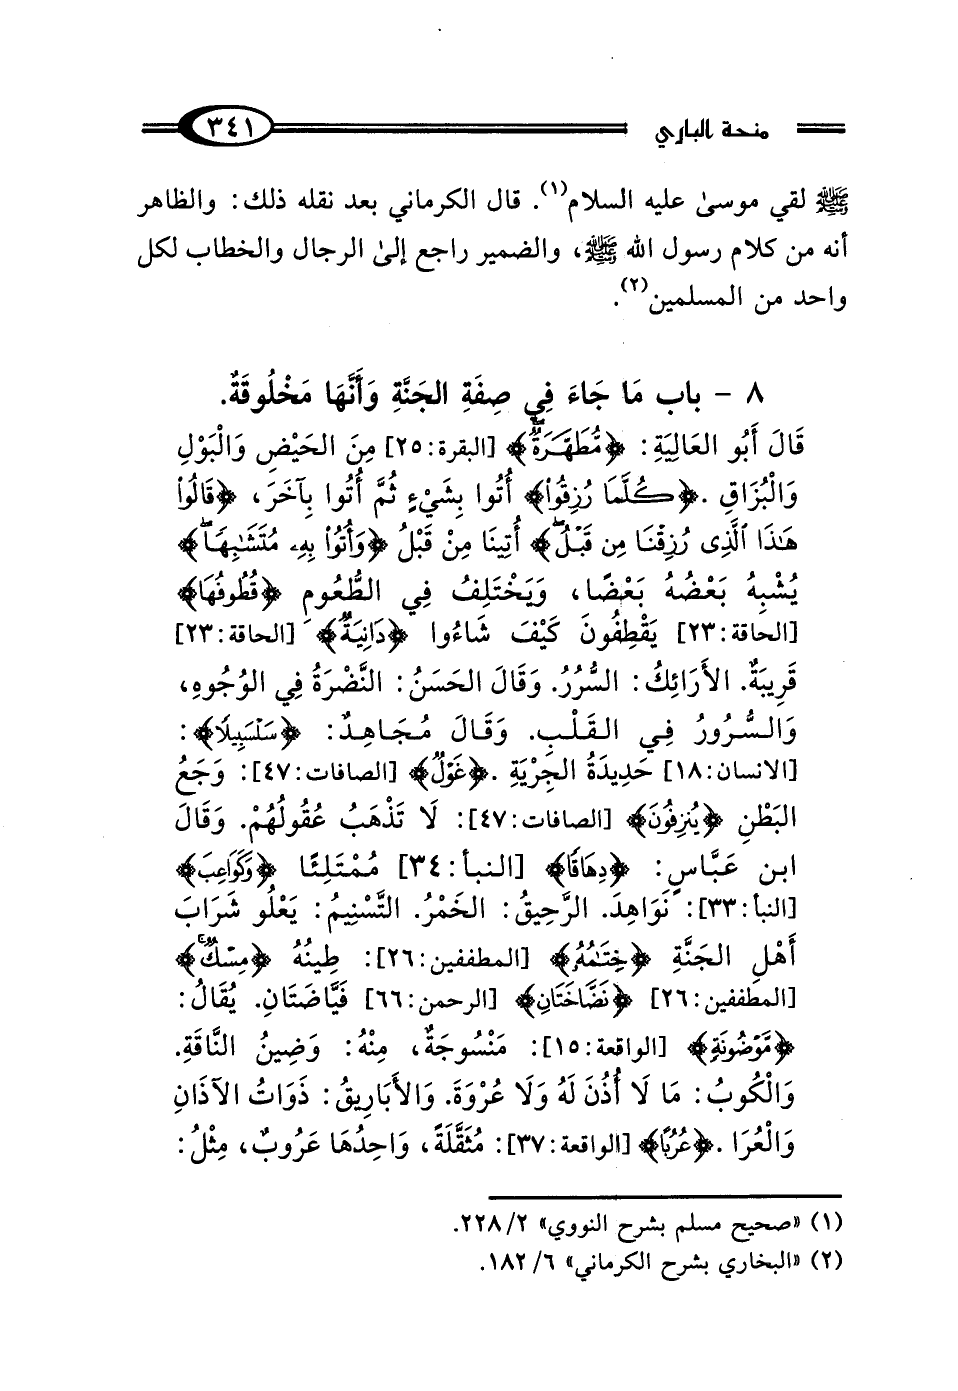 منحة الباري ٣٤١
ﷺ لقي موسىٰ عليه السلام(١). قال الكرماني بعد نقله ذلك: والظاهر
أنه من كلام رسول الله ﷺ، والضمير راجع إلىٰ الرجال والخطاب لكل
واحد من المسلمين(٢).
٨ - باب مَا جَاءَ فِي صِفَةِ الجَنَّةِ وَأَنَّهَا مَخْلُوقَةٌ.
قَالَ أَبُو العَالِيَةِ: ﴿مُّطَهَّرَةٌۖ﴾ [البقرة:٢٥] مِنَ الحَيْضِ وَالْبَوْلِ
وَالْبُزَاقِ. ﴿كُلَّمَا رُزِقُواْ﴾ أُتُوا بِشَيْءٍ ثُمَّ أُتُوا بِآخَرَ، ﴿قَالُواْ
هَٰذَا ٱلَّذِى رُزِقْنَا مِن قَبْلُۖ﴾ أُتِينَا مِنْ قَبْلُ ﴿وَأُتُواْ بِهِۦ مُتَشَٰبِهًاۖ﴾
يُشْبِهُ بَعْضُهُ بَعْضًا، وَيَخْتَلِفُ فِي الطُّعُومِ ﴿قُطُوفُهَا﴾
[الحاقة:٢٣] يَقْطِفُونَ كَيْفَ شَاءُوا ﴿دَانِيَةٌ﴾ [الحاقة:٢٣]
قَرِيبَةٌ. الأَرَائِكُ: السُّرُرُ. وَقَالَ الحَسَنُ: النَّضْرَةُ فِي الوُجُوهِ،
وَالسُّرُورُ فِي القَلْبِ. وَقَالَ مُجَاهِدٌ: ﴿سَلْسَبِيلًا﴾:
[الانسان:١٨] حَدِيدَةُ الجِرْيَةِ. ﴿غَوْلٌ﴾ [الصافات:٤٧]: وَجَعُ
البَطْنِ ﴿يُنزِفُونَ﴾ [الصافات:٤٧]: لَا تَذْهَبُ عُقُولُهُمْ. وَقَالَ
ابن عَبَّاسٍ: ﴿دِهَاقًا﴾ [النبأ:٣٤] مُمْتَلِئًا ﴿وَكَوَاعِبَ﴾
[النبأ:٣٣]: نَوَاهِدَ. الرَّحِيقُ: الخَمْرُ. التَّسْنِيمُ: يَعْلُو شَرَابَ
أَهْلِ الجَنَّةِ ﴿خِتَٰمُهُۥ﴾ [المطففين:٢٦]: طِينُهُ ﴿مِسْكٌۚ﴾
[المطففين:٢٦] ﴿نَضَّاخَتَانِ﴾ [الرحمن:٦٦] فَيَّاضَتَانِ. يُقَالُ:
﴿مَّوْضُونَةٍ﴾ [الواقعة:١٥]: مَنْسُوجَةٌ، مِنْهُ: وَضِينُ النَّاقَةِ.
وَالْكُوبُ: مَا لَا أُذُنَ لَهُ وَلَا عُرْوَةَ. وَالأَبَارِيقُ: ذَوَاتُ الآذَانِ
وَالْعُرَا. ﴿عُرُبًا﴾ [الواقعة:٣٧]: مُثَقَّلَةً، وَاحِدُهَا عَرُوبٌ، مِثْلُ:
(١) «صحيح مسلم بشرح النووي» ٢/ ٢٢٨.
(٢) «البخاري بشرح الكرماني» ٦/ ١٨٢.